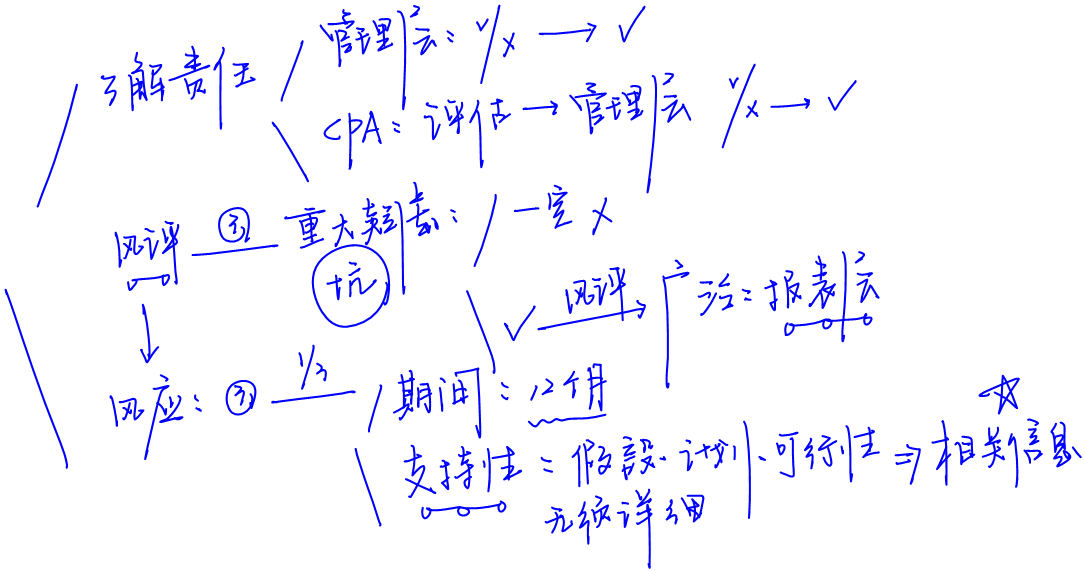 了解责任
管理层: √/× → √
CPA: 评估 → 管理层 √/× → √
风评 ③ 重大疑虑: 一定 ×
坑
√ 风评 → 广泛: 报表层
风应: ③ 1/3 期间: 12个月
支持性: 假設、计划、可行性 ⇒ 相关信息
无须详细